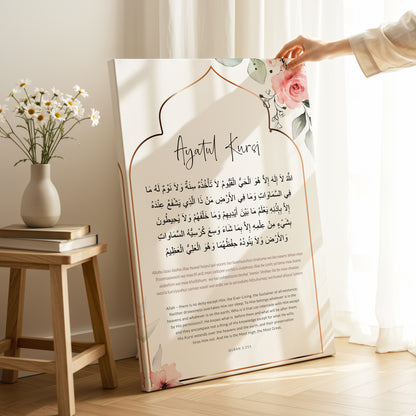 Ayatul Kursi
اللهُ لَا إِلَهَ إِلَّا هُوَ الْحَيُّ الْقَيُّومُ لَا تَأْخُذُهُ سِنَةٌ وَلَا نَوْمٌ لَهُ مَا
فِي السَّمَاوَاتِ وَمَا فِي الْأَرْضِ مَنْ ذَا الَّذِي يَشْفَعُ عِنْدَهُ
إِلَّا بِإِذْنِهِ يَعْلَمُ مَا بَيْنَ أَيْدِيهِمْ وَمَا خَلْفَهُمْ وَلَا يُحِيطُونَ
بِشَيْءٍ مِنْ عِلْمِهِ إِلَّا بِمَا شَاءَ وَسِعَ كُرْسِيُّهُ السَّمَاوَاتِ
وَالْأَرْضَ وَلَا يَئُودُهُ حِفْظُهُمَا وَهُوَ الْعَلِيُّ الْعَظِيمُ
Allah – there is no deity except Him, the Ever-Living, the Sustainer of all existence.
Neither drowsiness overtakes Him nor sleep. To Him belongs whatever is in the
heavens and whatever is on the earth. Who is it that can intercede with Him except
by His permission? He knows what is before them and what will be after them,
and they encompass not a thing of His knowledge except for what He wills.
His Kursi extends over the heavens and the earth, and their preservation
tires Him not. And He is the Most High, the Most Great.
QURAN 2:255